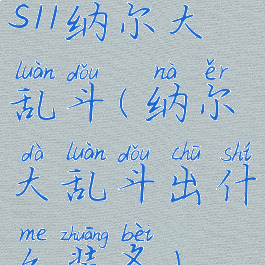 S11纳尔大
luàn dǒu nà ěr
乱斗(纳尔
dà luàn dǒu chū shí
大乱斗出什
me zhuāng bèi
么装备)